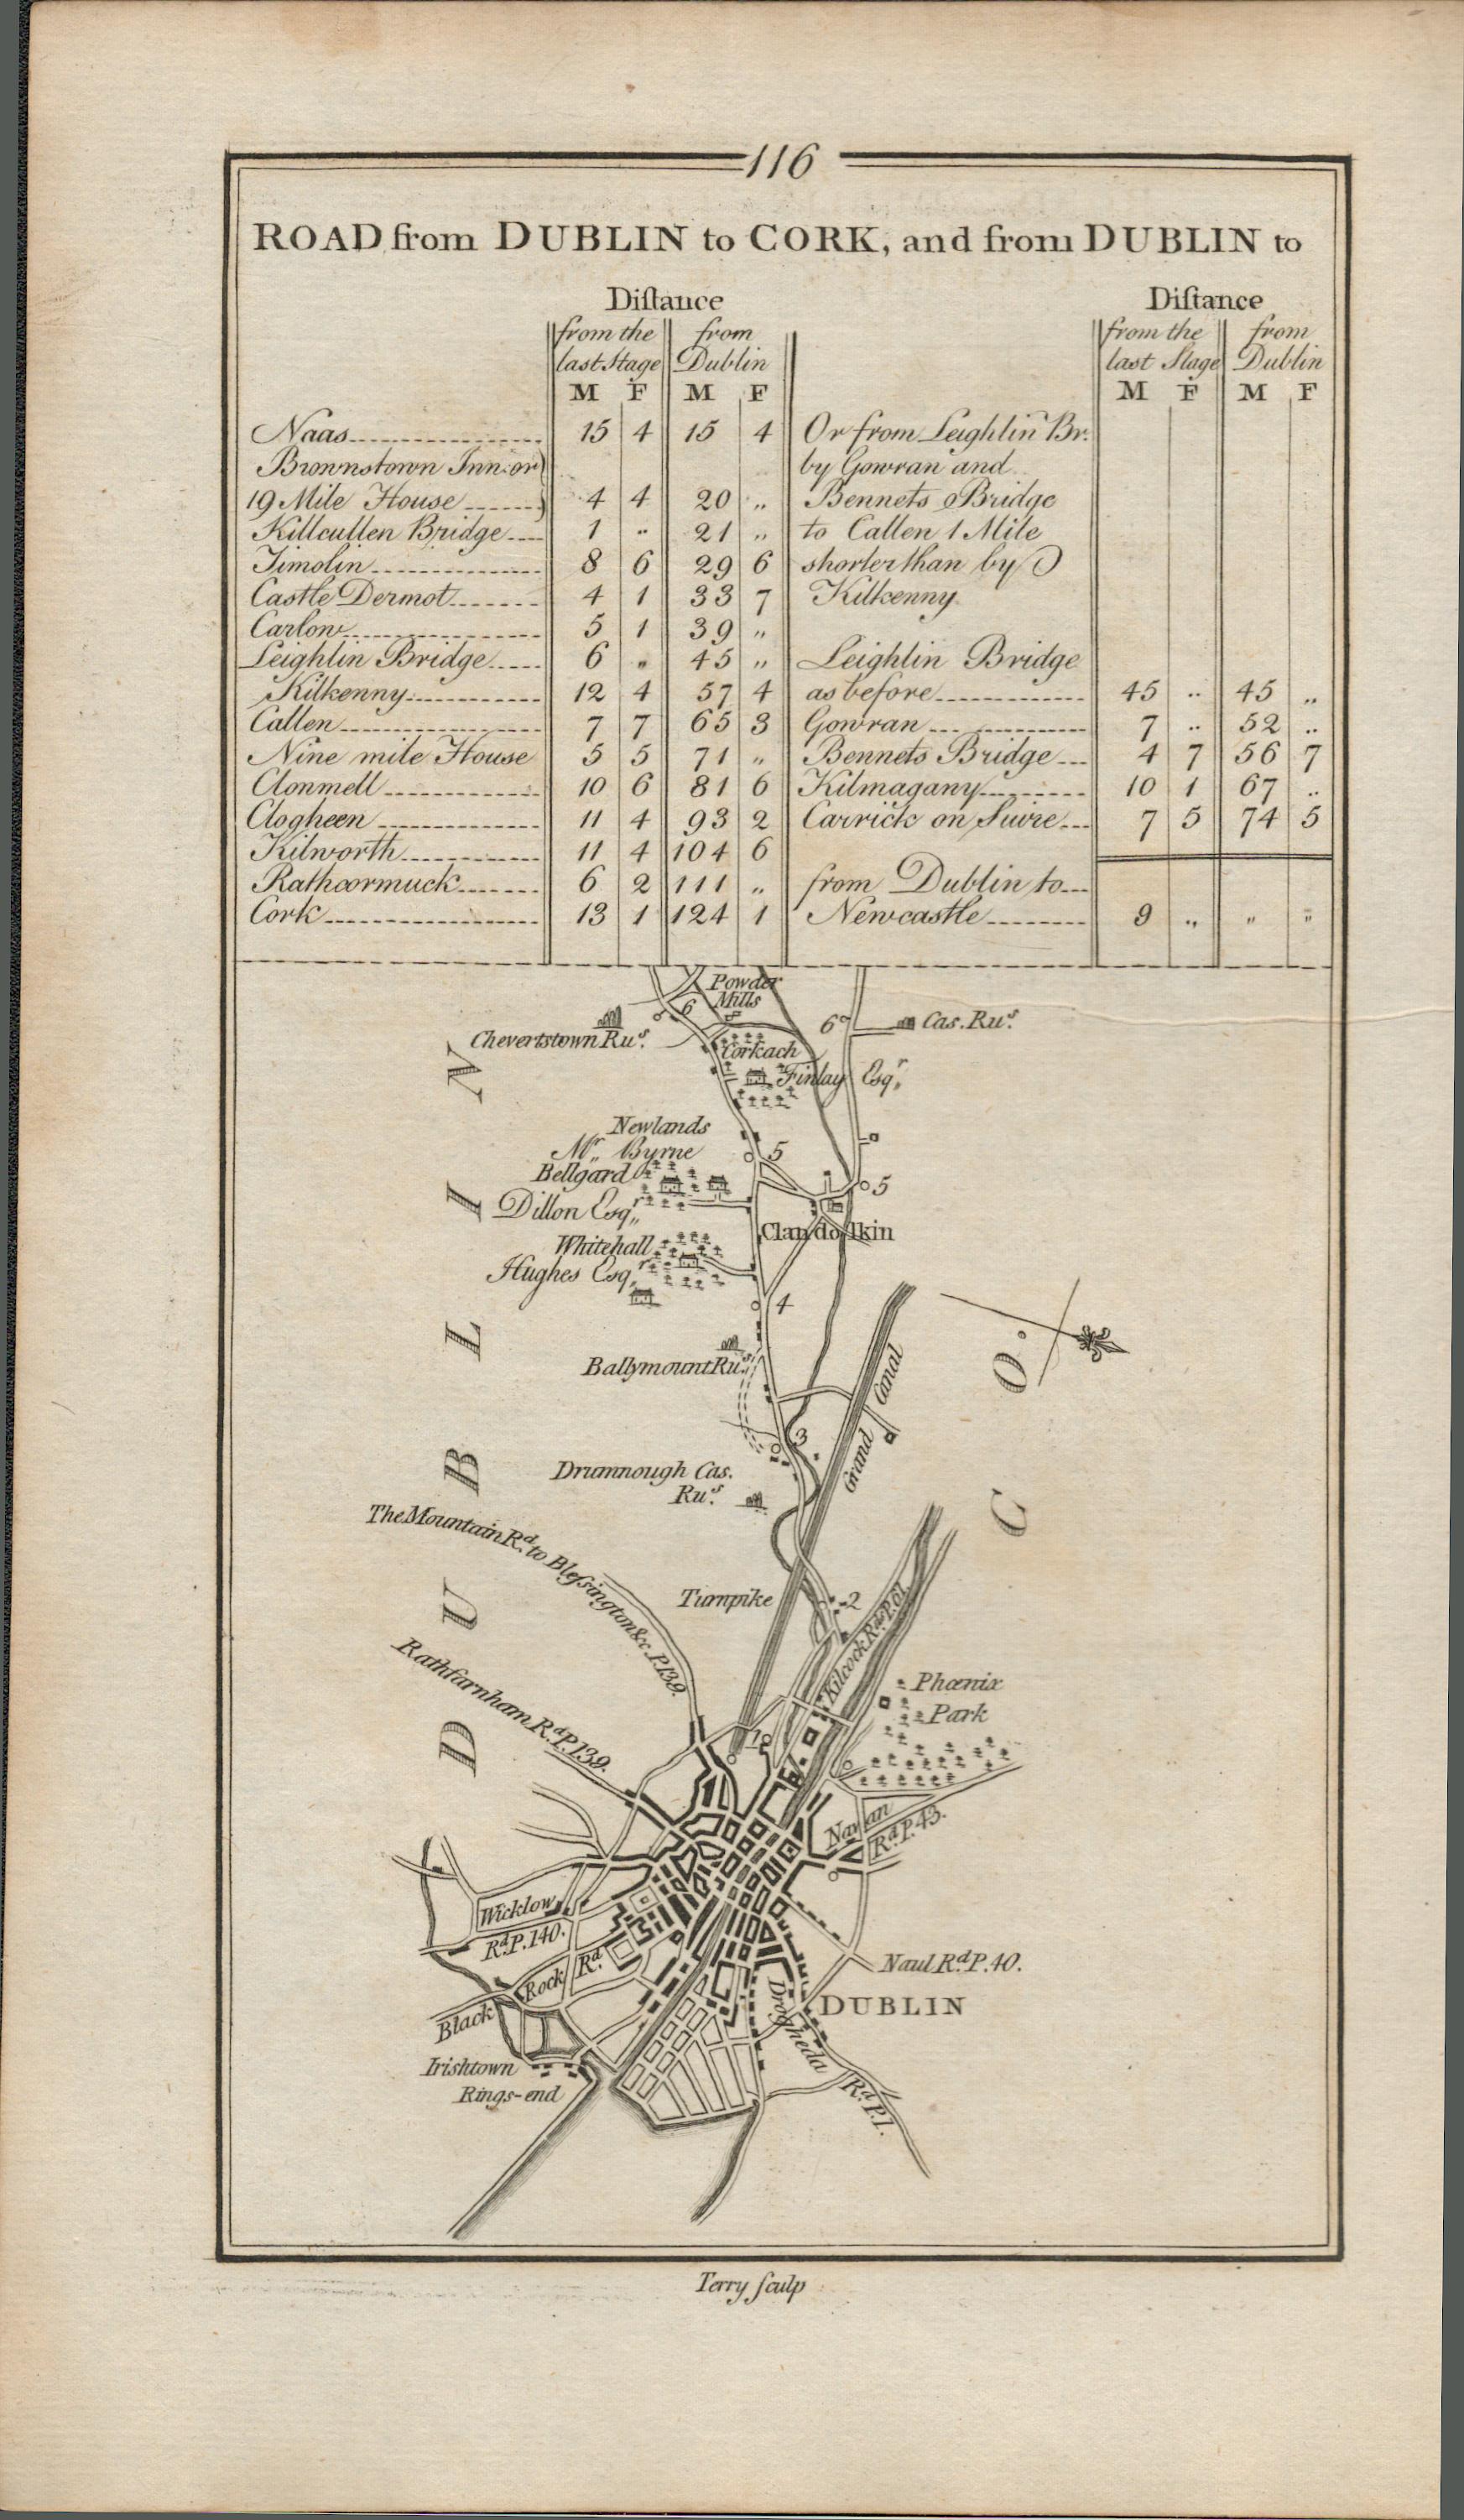 116
ROAD from DUBLIN to CORK, and from DUBLIN to
Diſtance
from the last Stage | from Dublin
M F M F
Naas 15 4 15 4
Brownstown Inn or
19 Mile House 4 4 20 „
Killcullen Bridge 1 „ 21 „
Timolin 8 6 29 6
Castle Dermot 4 1 33 7
Carlow 5 1 39 „
Leighlin Bridge 6 „ 45 „
Kilkenny 12 4 57 4
Callen 7 7 65 3
Nine mile House 5 5 71 „
Clonmell 10 6 81 6
Clogheen 11 4 93 2
Kilworth 11 4 104 6
Rathcormuck 6 2 111 „
Cork 13 1 124 1
Diſtance
from the last Stage | from Dublin
M F M F
Or from Leighlin Br.
by Gowran and
Bennets Bridge
to Callen 1 Mile
shorter than by
Kilkenny
Leighlin Bridge
as before 45 „ 45 „
Gowran 7 „ 52 „
Bennets Bridge 4 7 56 7
Kilmagany 10 1 67 „
Carrick on Suire 7 5 74 5
from Dublin to
Newcastle 9 „ „ „
Powder
Mills
6
6
Cas. Ruˢ.
Chevertstown Ruˢ.
Corkach
Finlay Esqʳ„
Newlands
Mʳ„ Byrne
5
Bellgard
5
Dillon Esqʳ„
Clandolkin
Whitehall
Hughes Esqʳ„
4
Ballymount Ruˢ.
Grand Canal
3
Drumnough Cas.
Ruˢ.
The Mountain Rᵈ. to Bleſsington &c P.139.
Turnpike
2
Kilcock Rᵈ. P.61.
Rathfarnham Rᵈ. P.139.
Phœnix
Park
1
Navan
Rᵈ. P.43.
Wicklow
Rᵈ. P.140.
Black Rock Rᵈ.
Naul Rᵈ. P.40.
DUBLIN
Drogheda Rᵈ. P.1.
Irishtown
Rings-end
DUBLIN
CO.
Terry ſculp